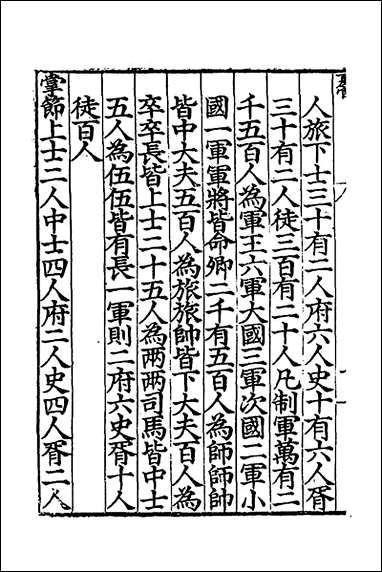 人旅下士三十有二人府六人史十有六人胥
三十有二人徒三百有二十人凡制軍萬有二
千五百人為軍王六軍大國三軍次國二軍小
國一軍軍將皆命卿二千有五百人為師師帥
皆中大夫五百人為旅旅帥皆下大夫百人為
卒卒長皆上士二十五人為两两司馬皆中士
五人為伍伍皆有長一軍則二府六史胥十人
徒百人
掌飾上士二人中士四人府二人史四人胥二人